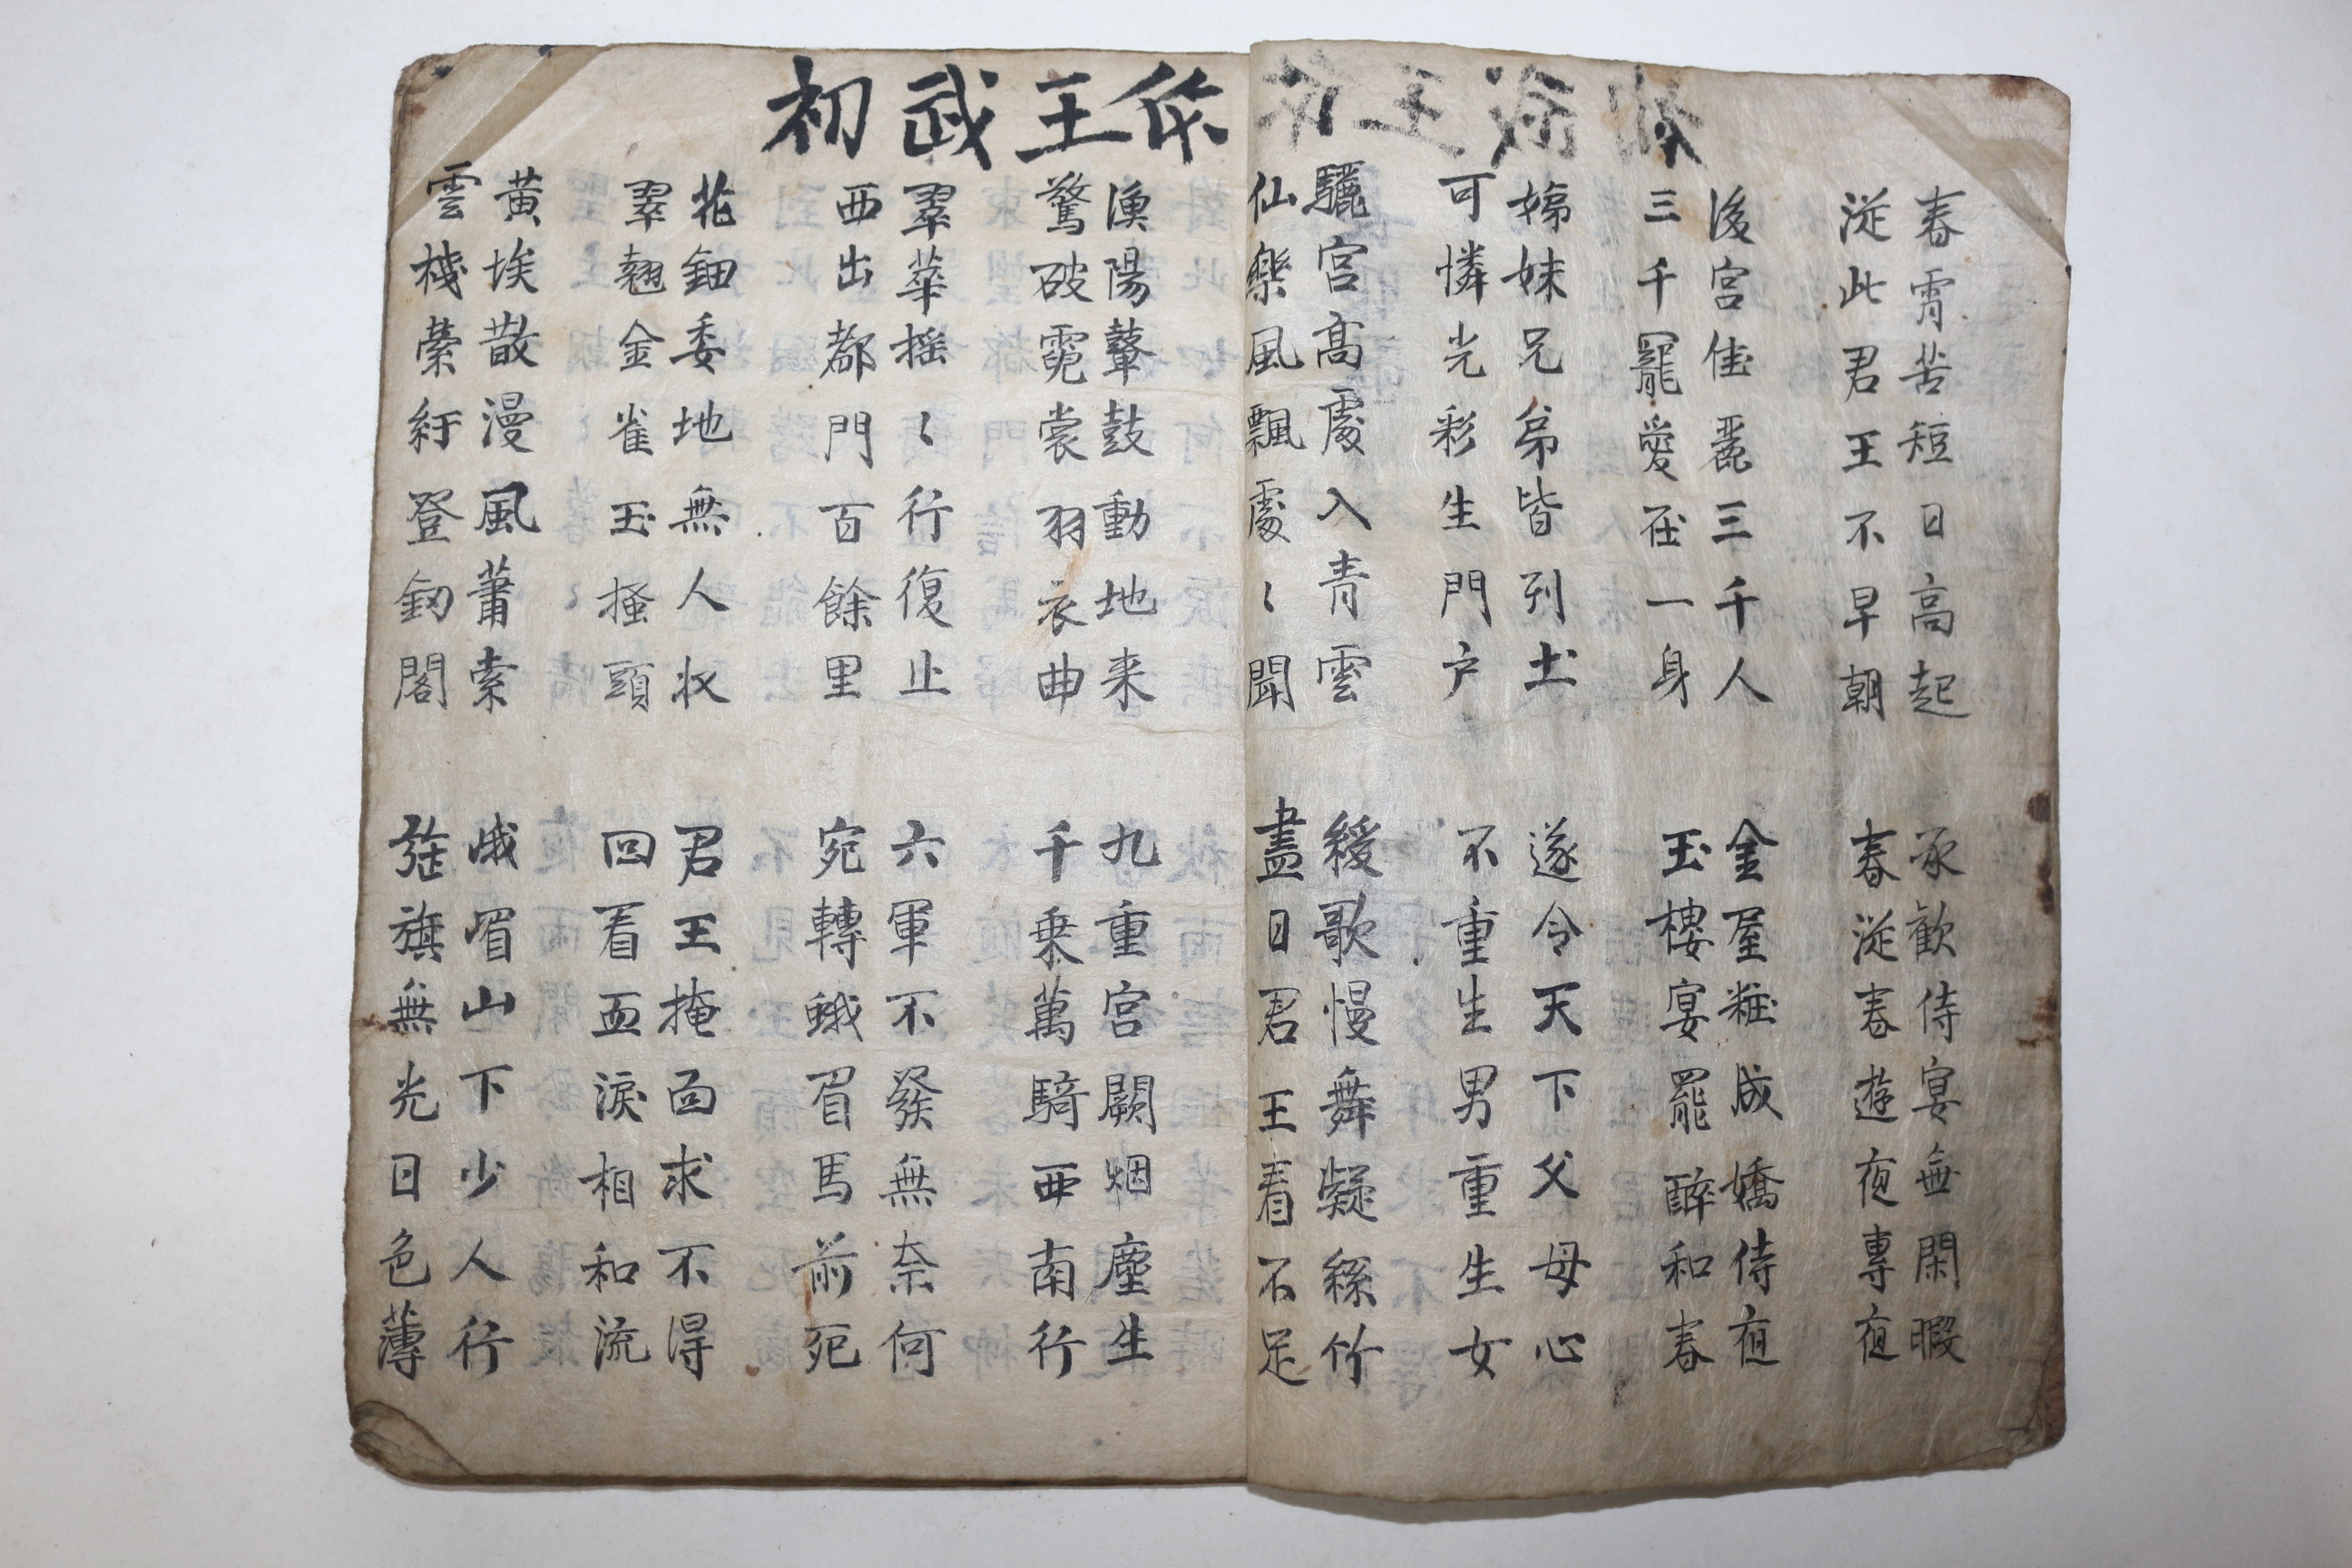 王武初
春霄苦短日高起
從此君王不早朝
承歡侍宴無閑暇
春從春遊夜專夜
後宮佳麗三千人
三千罷愛在一身
金屋粧成嬌侍夜
玉樓宴罷醉和春
娣妹兄弟皆列土
可憐光彩生門户
遂令天下父母心
不重生男重生女
驪宮高處入青雲
仙樂風飄處〻聞
緩歌慢舞凝絲竹
盡日君王看不足
漁陽鼙鼓動地来
驚破霓裳羽衣曲
九重宮闕烟塵生
千乗萬騎西南行
翠華搖〻行復止
西出都門百餘里
六軍不發無奈何
宛轉蛾眉馬前死
花鈿委地無人收
翠翹金雀玉搔頭
君王掩面求不得
回看血淚相和流
黃埃散漫風蕭索
雲棧縈紆登釰閣
峨眉山下少人行
旌旗無光日色薄